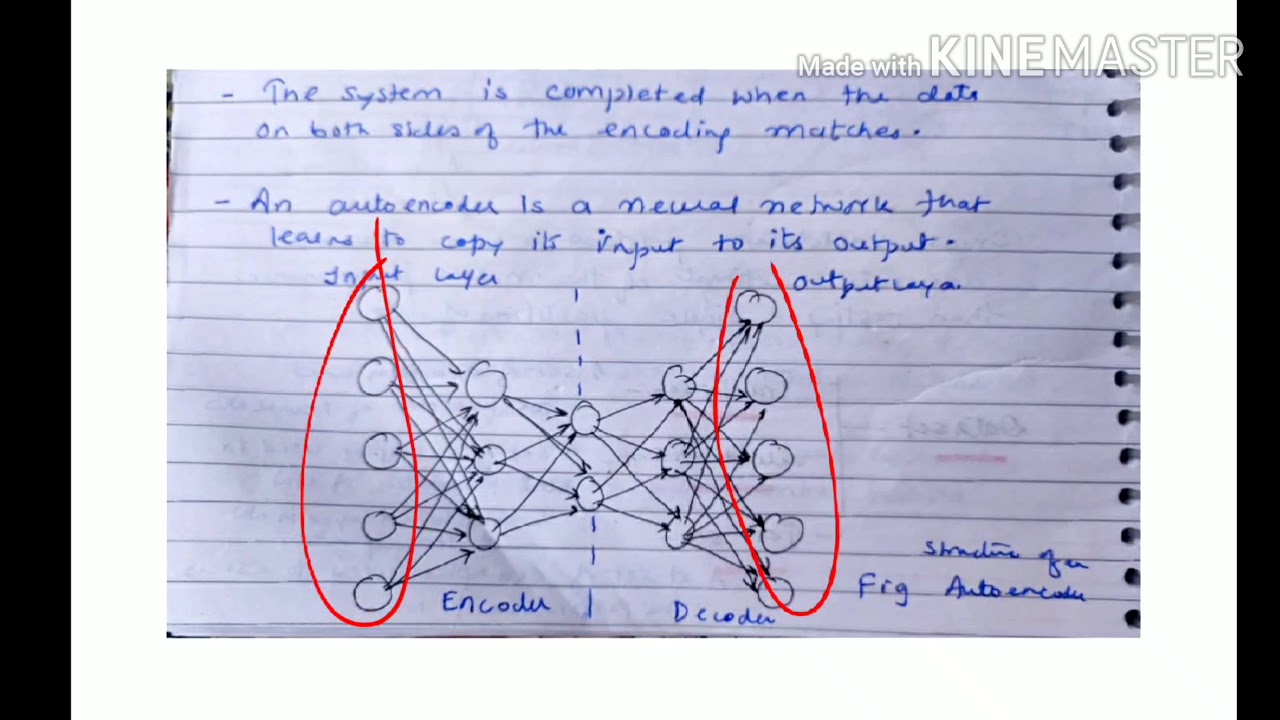 Made with KINEMASTER
- The system is completed when the data
on both sides of the encoding matches.
- An autoencoder is a neural network that
learns to copy its input to its output.
Input Layer
Output Layer
Encoder
Decoder
Structure of an
Fig Autoencoder